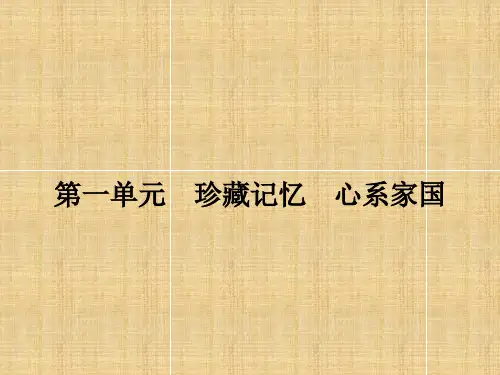 第一单元　珍藏记忆　心系家国